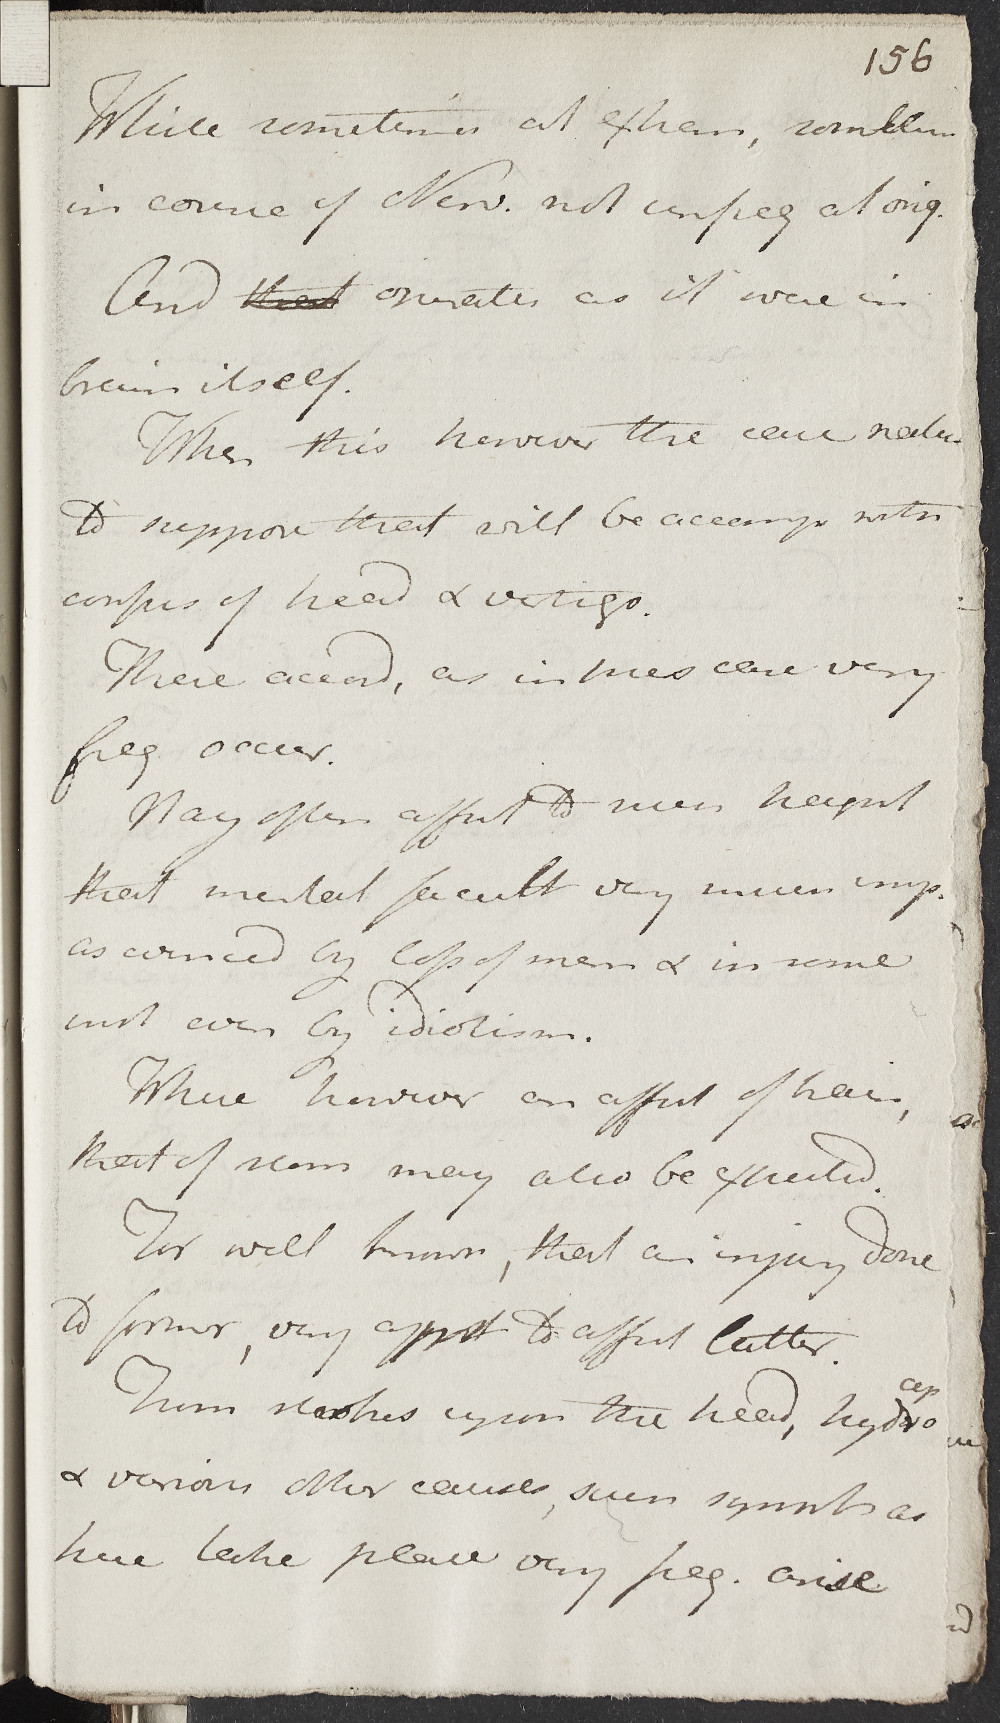 156
While sometimes at extrem, sometim
in course of Nerv. not unfreq at orig.
And that operates as it were in
brain itself.
When this however the case natu-
to suppose that will be accomp with
confus of head & vertigo.
These accord, as in pres case very
freq occur.
Nay often affect to such heighst
that mental facult very much imp.
as evinced by loss of mem & in some
inst even by idiotism.
Where however an affect of brain,
that of stom may also be expected.
For well known, that an injury done
to former, very appt to affect latter.
From strokes upon the head, hydro
cep
& various other causes, such sympt as
here take place very freq. arise